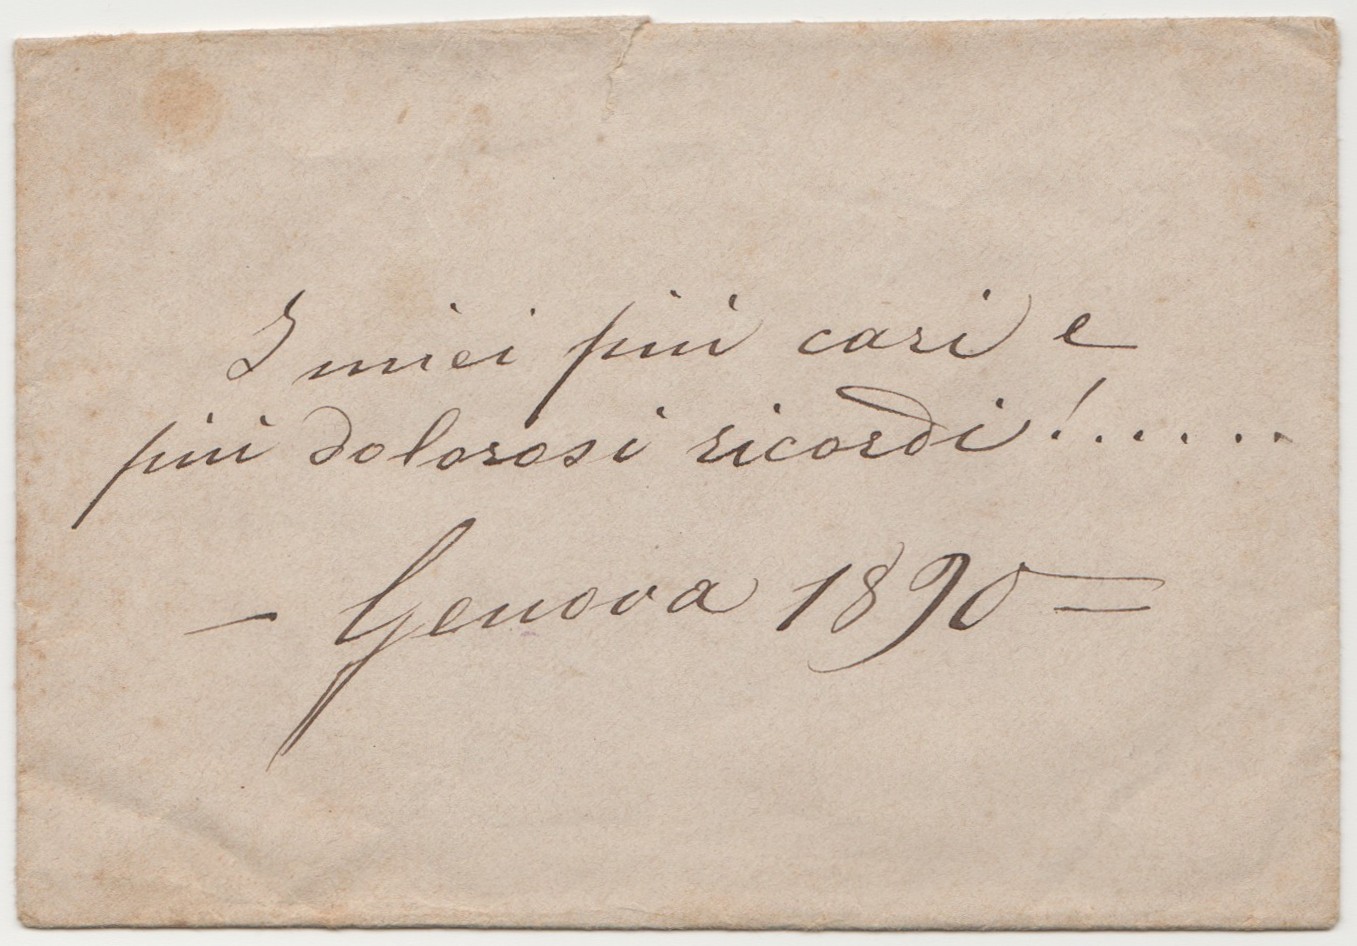 I miei più cari e
più dolorosi ricordi!......
- Genova 1890 =